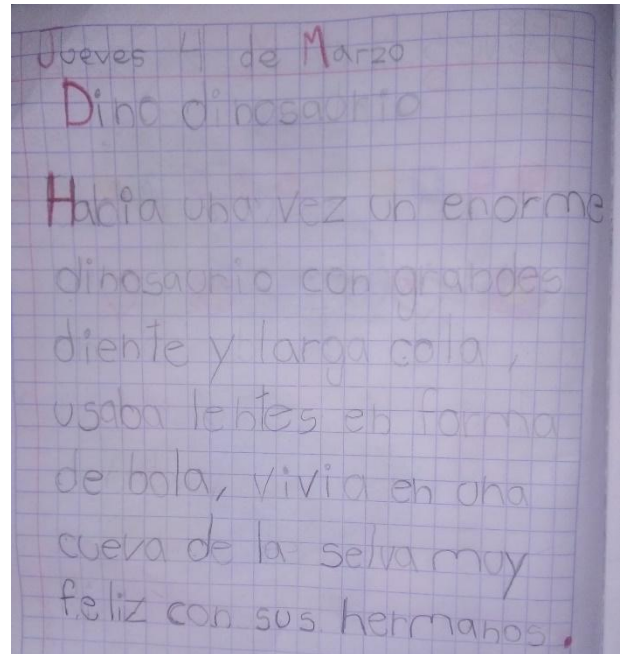 Jueves 4 de Marzo
Dino dinosaurio
Habia una vez un enorme
dinosaurio con grandes
diente y larga cola,
usaba lentes en forma
de bola, vivia en una
cueva de la selva muy
feliz con sus hermanos.